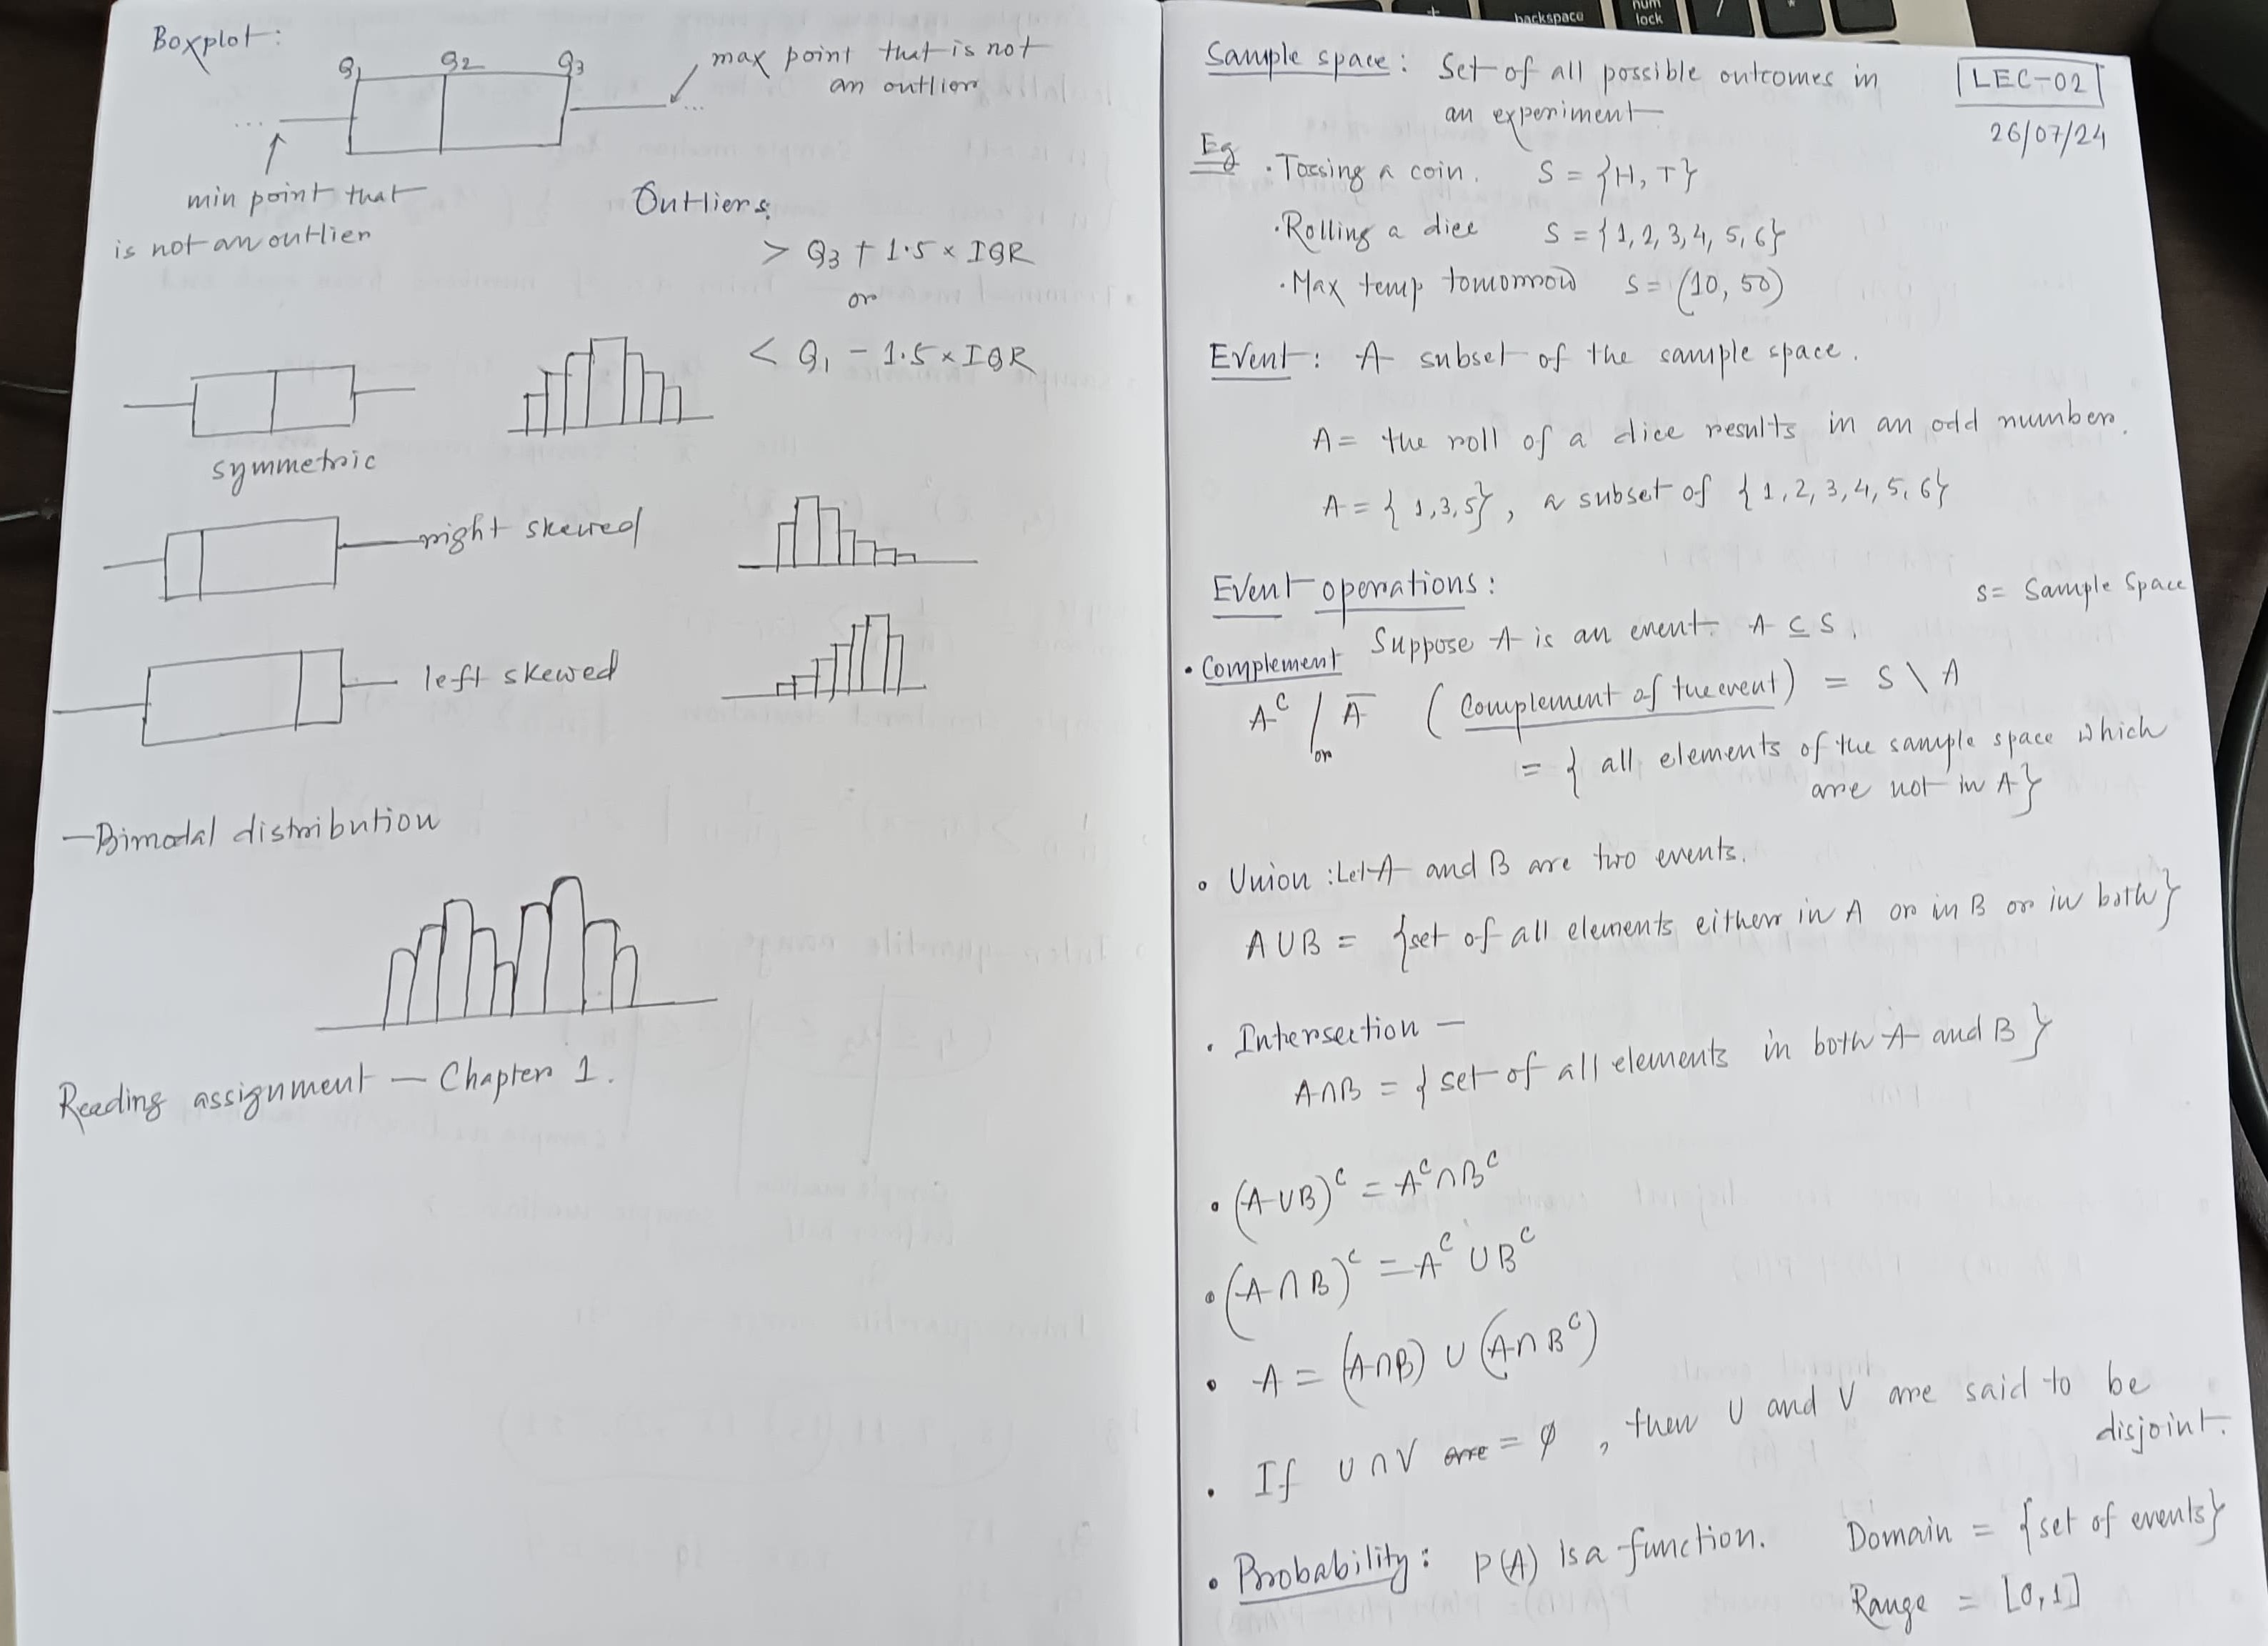 Boxplot:
Q1 Q2 Q3
max point that is not
an outlier
...
...
min point that
is not an outlier
Outliers
> Q3 + 1.5 × IQR
or
< Q1 - 1.5 × IQR
symmetric
right skewed
left skewed
—Bimodal distribution
Reading assignment — Chapter 1.
backspace
num
lock
Sample space: Set of all possible outcomes in
an experiment
LEC-02
26/07/24
Eg
· Tossing a coin. S = {H, T}
· Rolling a dice S = {1, 2, 3, 4, 5, 6}
· Max temp tomorrow S = (10, 50)
Event: A subset of the sample space.
A = the roll of a dice results in an odd number.
A = {1,3,5}, a subset of {1, 2, 3, 4, 5, 6}
Event operations:
S = Sample Space
Suppose A is an event. A ⊆ S.
• Complement
A^C / Ā (Complement of the event) = S \ A
or
= { all elements of the sample space which
are not in A}
• Union : Let A and B are two events.
A ∪ B = {set of all elements either in A or in B or in both}
• Intersection —
A∩B = { set of all elements in both A and B }
• (A∪B)^C = A^C ∩ B^C
• (A∩B)^C = A^C ∪ B^C
• A = (A∩B) ∪ (A∩B^C)
• If U∩V are = φ, then U and V are said to be
disjoint.
• Probability: P(A) is a function. Domain = {set of events}
Range = [0,1]